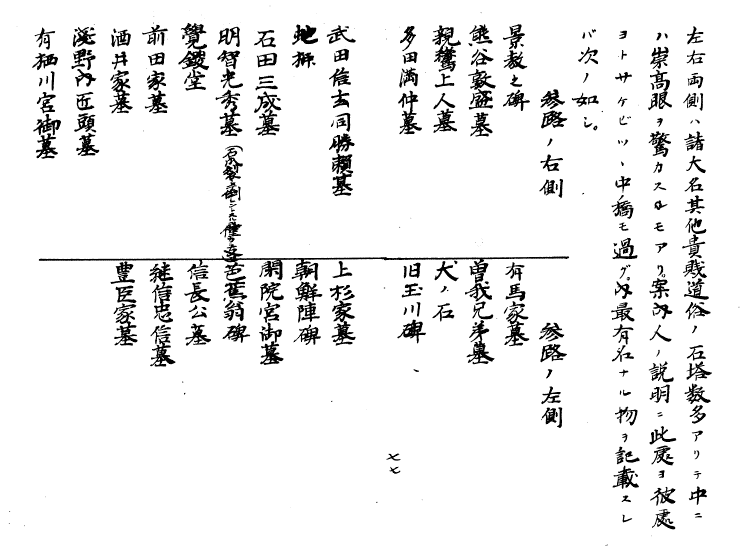 左右両側ハ諸大名其他貴賤道俗ノ石塔数多アリテ中ニ
ハ崇高眼ヲ驚カスルモアリ。案内人ノ説明ニ此處ヨ彼處
ヨトサケビツヽ中ノ橋モ過グ。内最有名ナル物ヲ記載スレ
バ次ノ如シ。
参路ノ右側
景教之碑
熊谷敦盛墓
親鸞上人墓
多田満仲墓
武田信玄同勝頼墓
蛇柳
石田三成墓
明智光秀墓
覺鑁堂
前田家墓
酒井家墓
浅野内匠頭墓
有栖川宮御墓
参路ノ左側
有馬家墓
曽我兄弟墓
犬ノ石
旧玉川碑
上杉家墓
朝鮮陣碑
閑院宮御墓
芭蕉翁碑
信長公墓
継信忠信墓
豊臣家墓
七七